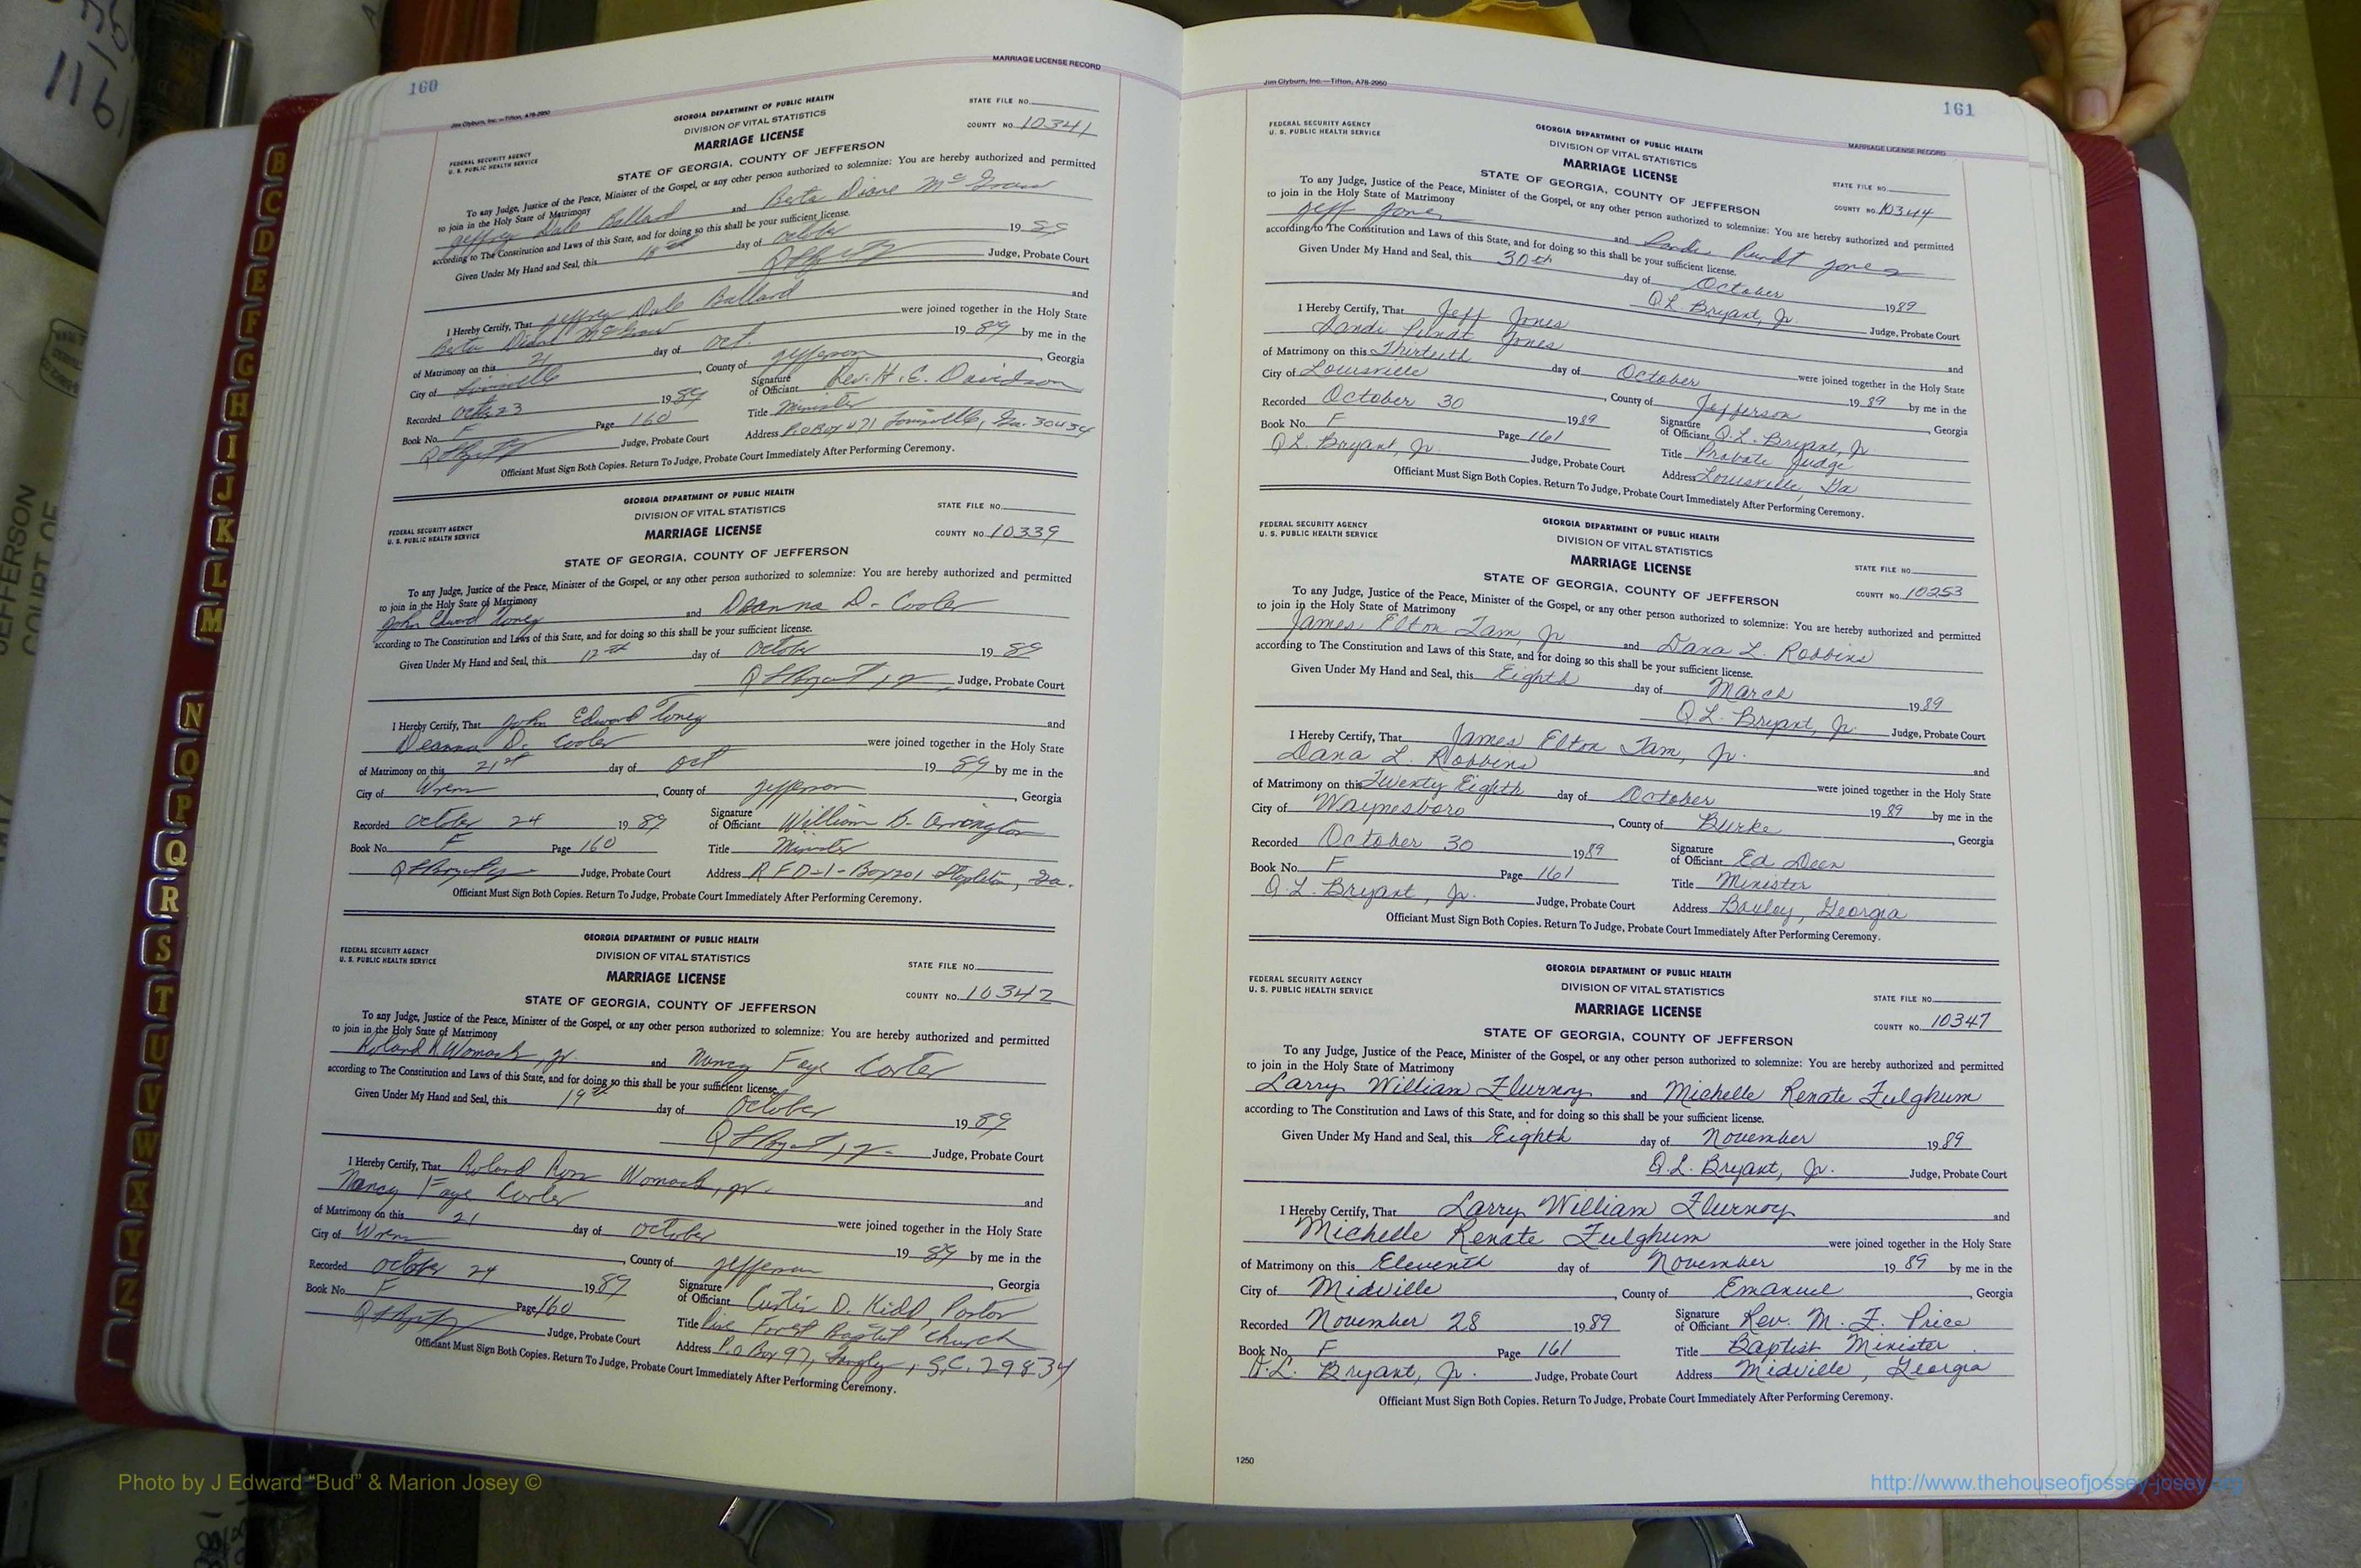 160
MARRIAGE LICENSE RECORD
Jim Clyburn, Inc.—Tifton, A78-2950
GEORGIA DEPARTMENT OF PUBLIC HEALTH
DIVISION OF VITAL STATISTICS
MARRIAGE LICENSE
STATE FILE NO.
COUNTY NO. 10341
FEDERAL SECURITY AGENCY
U. S. PUBLIC HEALTH SERVICE
STATE OF GEORGIA, COUNTY OF JEFFERSON
To any Judge, Justice of the Peace, Minister of the Gospel, or any other person authorized to solemnize: You are hereby authorized and permitted
to join in the Holy State of Matrimony
Jeffrey Dale Ballard and Berta Diane
according to The Constitution and Laws of this State, and for doing so this shall be your sufficient license.
Given Under My Hand and Seal, this 18th day of October 19 89
Judge, Probate Court
I Hereby Certify, That Jeffrey Dale Ballard and
Berta Diane were joined together in the Holy State
of Matrimony on this 21 day of Oct. 19 89 by me in the
City of Louisville, County of Jefferson, Georgia
Recorded Octo 23 19 89 Signature of Officiant Rev. H. E. Davidson
Book No. F Page 160 Title Minister
Judge, Probate Court Address P.O Box 471 Louisville, Ga. 30434
Officiant Must Sign Both Copies. Return To Judge, Probate Court Immediately After Performing Ceremony.
GEORGIA DEPARTMENT OF PUBLIC HEALTH
DIVISION OF VITAL STATISTICS
MARRIAGE LICENSE
STATE FILE NO.
COUNTY NO. 10339
FEDERAL SECURITY AGENCY
U. S. PUBLIC HEALTH SERVICE
STATE OF GEORGIA, COUNTY OF JEFFERSON
To any Judge, Justice of the Peace, Minister of the Gospel, or any other person authorized to solemnize: You are hereby authorized and permitted
to join in the Holy State of Matrimony
John Edward Toney and Deanna D. Cooler
according to The Constitution and Laws of this State, and for doing so this shall be your sufficient license.
Given Under My Hand and Seal, this 12th day of October 19 89
Judge, Probate Court
I Hereby Certify, That John Edward Toney and
Deanna D. Cooler were joined together in the Holy State
of Matrimony on this 21st day of Oct 19 89 by me in the
City of Wrens, County of Jefferson, Georgia
Recorded October 24 19 89 Signature of Officiant William B. Arrington
Book No. F Page 160 Title Minister
Judge, Probate Court Address R F D-1-Box 201 Stapleton, Ga.
Officiant Must Sign Both Copies. Return To Judge, Probate Court Immediately After Performing Ceremony.
GEORGIA DEPARTMENT OF PUBLIC HEALTH
DIVISION OF VITAL STATISTICS
MARRIAGE LICENSE
STATE FILE NO.
COUNTY NO. 10342
FEDERAL SECURITY AGENCY
U. S. PUBLIC HEALTH SERVICE
STATE OF GEORGIA, COUNTY OF JEFFERSON
To any Judge, Justice of the Peace, Minister of the Gospel, or any other person authorized to solemnize: You are hereby authorized and permitted
to join in the Holy State of Matrimony
Roland R Womack, Jr. and Nancy Faye Carter
according to The Constitution and Laws of this State, and for doing so this shall be your sufficient license.
Given Under My Hand and Seal, this 19th day of October 19 89
Judge, Probate Court
I Hereby Certify, That Roland Womack, Jr. and
Nancy Faye Carter were joined together in the Holy State
of Matrimony on this 21 day of October 19 89 by me in the
City of Wrens, County of Jefferson, Georgia
Recorded October 24 19 89 Signature of Officiant Curtis D. Kidd, Pastor
Book No. F Page 160 Title Pine Forest Baptist Church
Judge, Probate Court Address P.O Box 97, S.C. 29834
Officiant Must Sign Both Copies. Return To Judge, Probate Court Immediately After Performing Ceremony.
Jim Clyburn, Inc.—Tifton, A78-2950
161
MARRIAGE LICENSE RECORD
FEDERAL SECURITY AGENCY
U. S. PUBLIC HEALTH SERVICE
GEORGIA DEPARTMENT OF PUBLIC HEALTH
DIVISION OF VITAL STATISTICS
MARRIAGE LICENSE
STATE FILE NO.
COUNTY NO. 10344
STATE OF GEORGIA, COUNTY OF JEFFERSON
To any Judge, Justice of the Peace, Minister of the Gospel, or any other person authorized to solemnize: You are hereby authorized and permitted
to join in the Holy State of Matrimony
Jeff Jones and Sandi Jones
according to The Constitution and Laws of this State, and for doing so this shall be your sufficient license.
Given Under My Hand and Seal, this 30th day of October 19 89
Q.L. Bryant, Jr. Judge, Probate Court
I Hereby Certify, That Jeff Jones and
Sandi Jones were joined together in the Holy State
of Matrimony on this Thirtieth day of October 19 89 by me in the
City of Louisville, County of Jefferson, Georgia
Recorded October 30 19 89 Signature of Officiant Q.L. Bryant, Jr
Book No. F Page 161 Title Probate Judge
Q L. Bryant, Jr. Judge, Probate Court Address Louisville, Ga
Officiant Must Sign Both Copies. Return To Judge, Probate Court Immediately After Performing Ceremony.
FEDERAL SECURITY AGENCY
U. S. PUBLIC HEALTH SERVICE
GEORGIA DEPARTMENT OF PUBLIC HEALTH
DIVISION OF VITAL STATISTICS
MARRIAGE LICENSE
STATE FILE NO.
COUNTY NO. 10253
STATE OF GEORGIA, COUNTY OF JEFFERSON
To any Judge, Justice of the Peace, Minister of the Gospel, or any other person authorized to solemnize: You are hereby authorized and permitted
to join in the Holy State of Matrimony
James Elton Tam, Jr and Dana L. Robbins
according to The Constitution and Laws of this State, and for doing so this shall be your sufficient license.
Given Under My Hand and Seal, this Eighth day of March 19 89
Q L. Bryant, Jr. Judge, Probate Court
I Hereby Certify, That James Elton Tam, Jr. and
Dana L. Robbins were joined together in the Holy State
of Matrimony on this Twenty Eighth day of October 19 89 by me in the
City of Waynesboro, County of Burke, Georgia
Recorded October 30 19 89 Signature of Officiant Ed Deen
Book No. F Page 161 Title Minister
Q.L. Bryant, Jr. Judge, Probate Court Address Baxley, Georgia
Officiant Must Sign Both Copies. Return To Judge, Probate Court Immediately After Performing Ceremony.
FEDERAL SECURITY AGENCY
U. S. PUBLIC HEALTH SERVICE
GEORGIA DEPARTMENT OF PUBLIC HEALTH
DIVISION OF VITAL STATISTICS
MARRIAGE LICENSE
STATE FILE NO.
COUNTY NO. 10347
STATE OF GEORGIA, COUNTY OF JEFFERSON
To any Judge, Justice of the Peace, Minister of the Gospel, or any other person authorized to solemnize: You are hereby authorized and permitted
to join in the Holy State of Matrimony
Larry William Flurnoy and Michelle Renate Fulghum
according to The Constitution and Laws of this State, and for doing so this shall be your sufficient license.
Given Under My Hand and Seal, this Eighth day of November 19 89
Q.L. Bryant, Jr. Judge, Probate Court
I Hereby Certify, That Larry William Flurnoy and
Michelle Renate Fulghum were joined together in the Holy State
of Matrimony on this Eleventh day of November 19 89 by me in the
City of Midville, County of Emanuel, Georgia
Recorded November 28 19 89 Signature of Officiant Rev. M. F. Price
Book No. F Page 161 Title Baptist Minister
Q.L. Bryant, Jr. Judge, Probate Court Address Midville, Georgia
Officiant Must Sign Both Copies. Return To Judge, Probate Court Immediately After Performing Ceremony.
1250
B
C
D
E
F
G
H
I
J
K
L
M
N
O
P
Q
R
S
T
U
V
W
X
Y
Z
JEFFERSON
COURT OF
Photo by J Edward “Bud” & Marion Josey ©
http://www.thehouseofjossey-josey.org